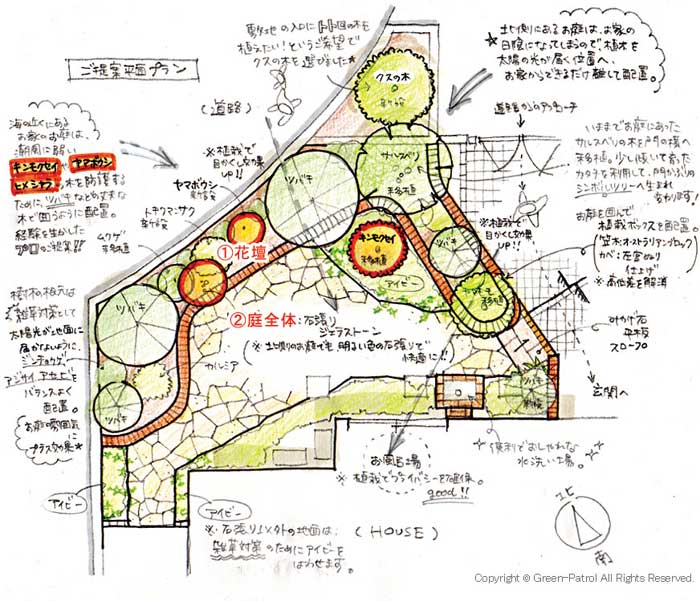 ご提案平面プラン
敷地の入口に
植えたい！というご希望で
クスの木を選びました★
クスの木
新植
★土地側にあるお庭は、お家の
日陰になってしまうので、植木を
太陽の光が届く位置へ、
お家からできるだけ離して配置。
(道路)
道路からのアプローチ
海の近くにある
お家のお庭は、
潮風に弱い
キンモクセイ ヤマボウシ
ヒメシャラ の木を防護する
ために、ツバキなどの丈夫な
木で囲うように配置。
経験を生かした
プロのご提案!!
※植栽で
目かくし効果
UP!!
サルスベリ
移植
ツバキ
ヤマボウシ
新植
トキワマンサク
新植
ムクゲ
移植
①花壇
キンモクセイ
移植
アイビー
※植栽で
目かくし効果
UP!!
ツバキ
いままでお庭にあった
サルスベリの木を門の横へ
移植。少し傾いて育った
カタチを利用して、門かぶりの
シンボルツリーへ生まれ
変わります！
お庭を囲んで
植栽ボックスを配置。
※高低差を解消
②庭全体:石張り
ジェラストーン
(※土地側のお庭でも明るい色の石張りで
快適に!!)
カルミア
ツバキ
ツバキ
樹木の根元は
雑草対策として
太陽光が地面に
届かないように、
ジンチョウゲ、
アジサイ、アセビを
バランスよく
配置。
お庭の雰囲気に
プラス効果★
みかげ石
平板
スロープ
玄関へ
ツバキ
お風呂場
※植栽でプライバシーを確保。
good!!
☆便利でおしゃれな
水洗い場。☆
アイビー
アイビー
※石張り以外の地面は、
雑草対策のためにアイビーを
はわせます。
(HOUSE)
南
Copyright © Green-Patrol All Rights Reserved.